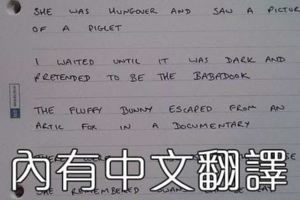 SHE WAS HUNGOVER AND SAW A PICTUR
OF A PIGLET
I WAITED UNTIL IT WAS DARK AND
PRETENDED TO BE THE BABADOOK
THE FLUFFY BUNNY ESCAPED FROM AN
ARTIC FOX IN A DOCUMENTARY
內有中文翻譯
SHE REMEMBERED